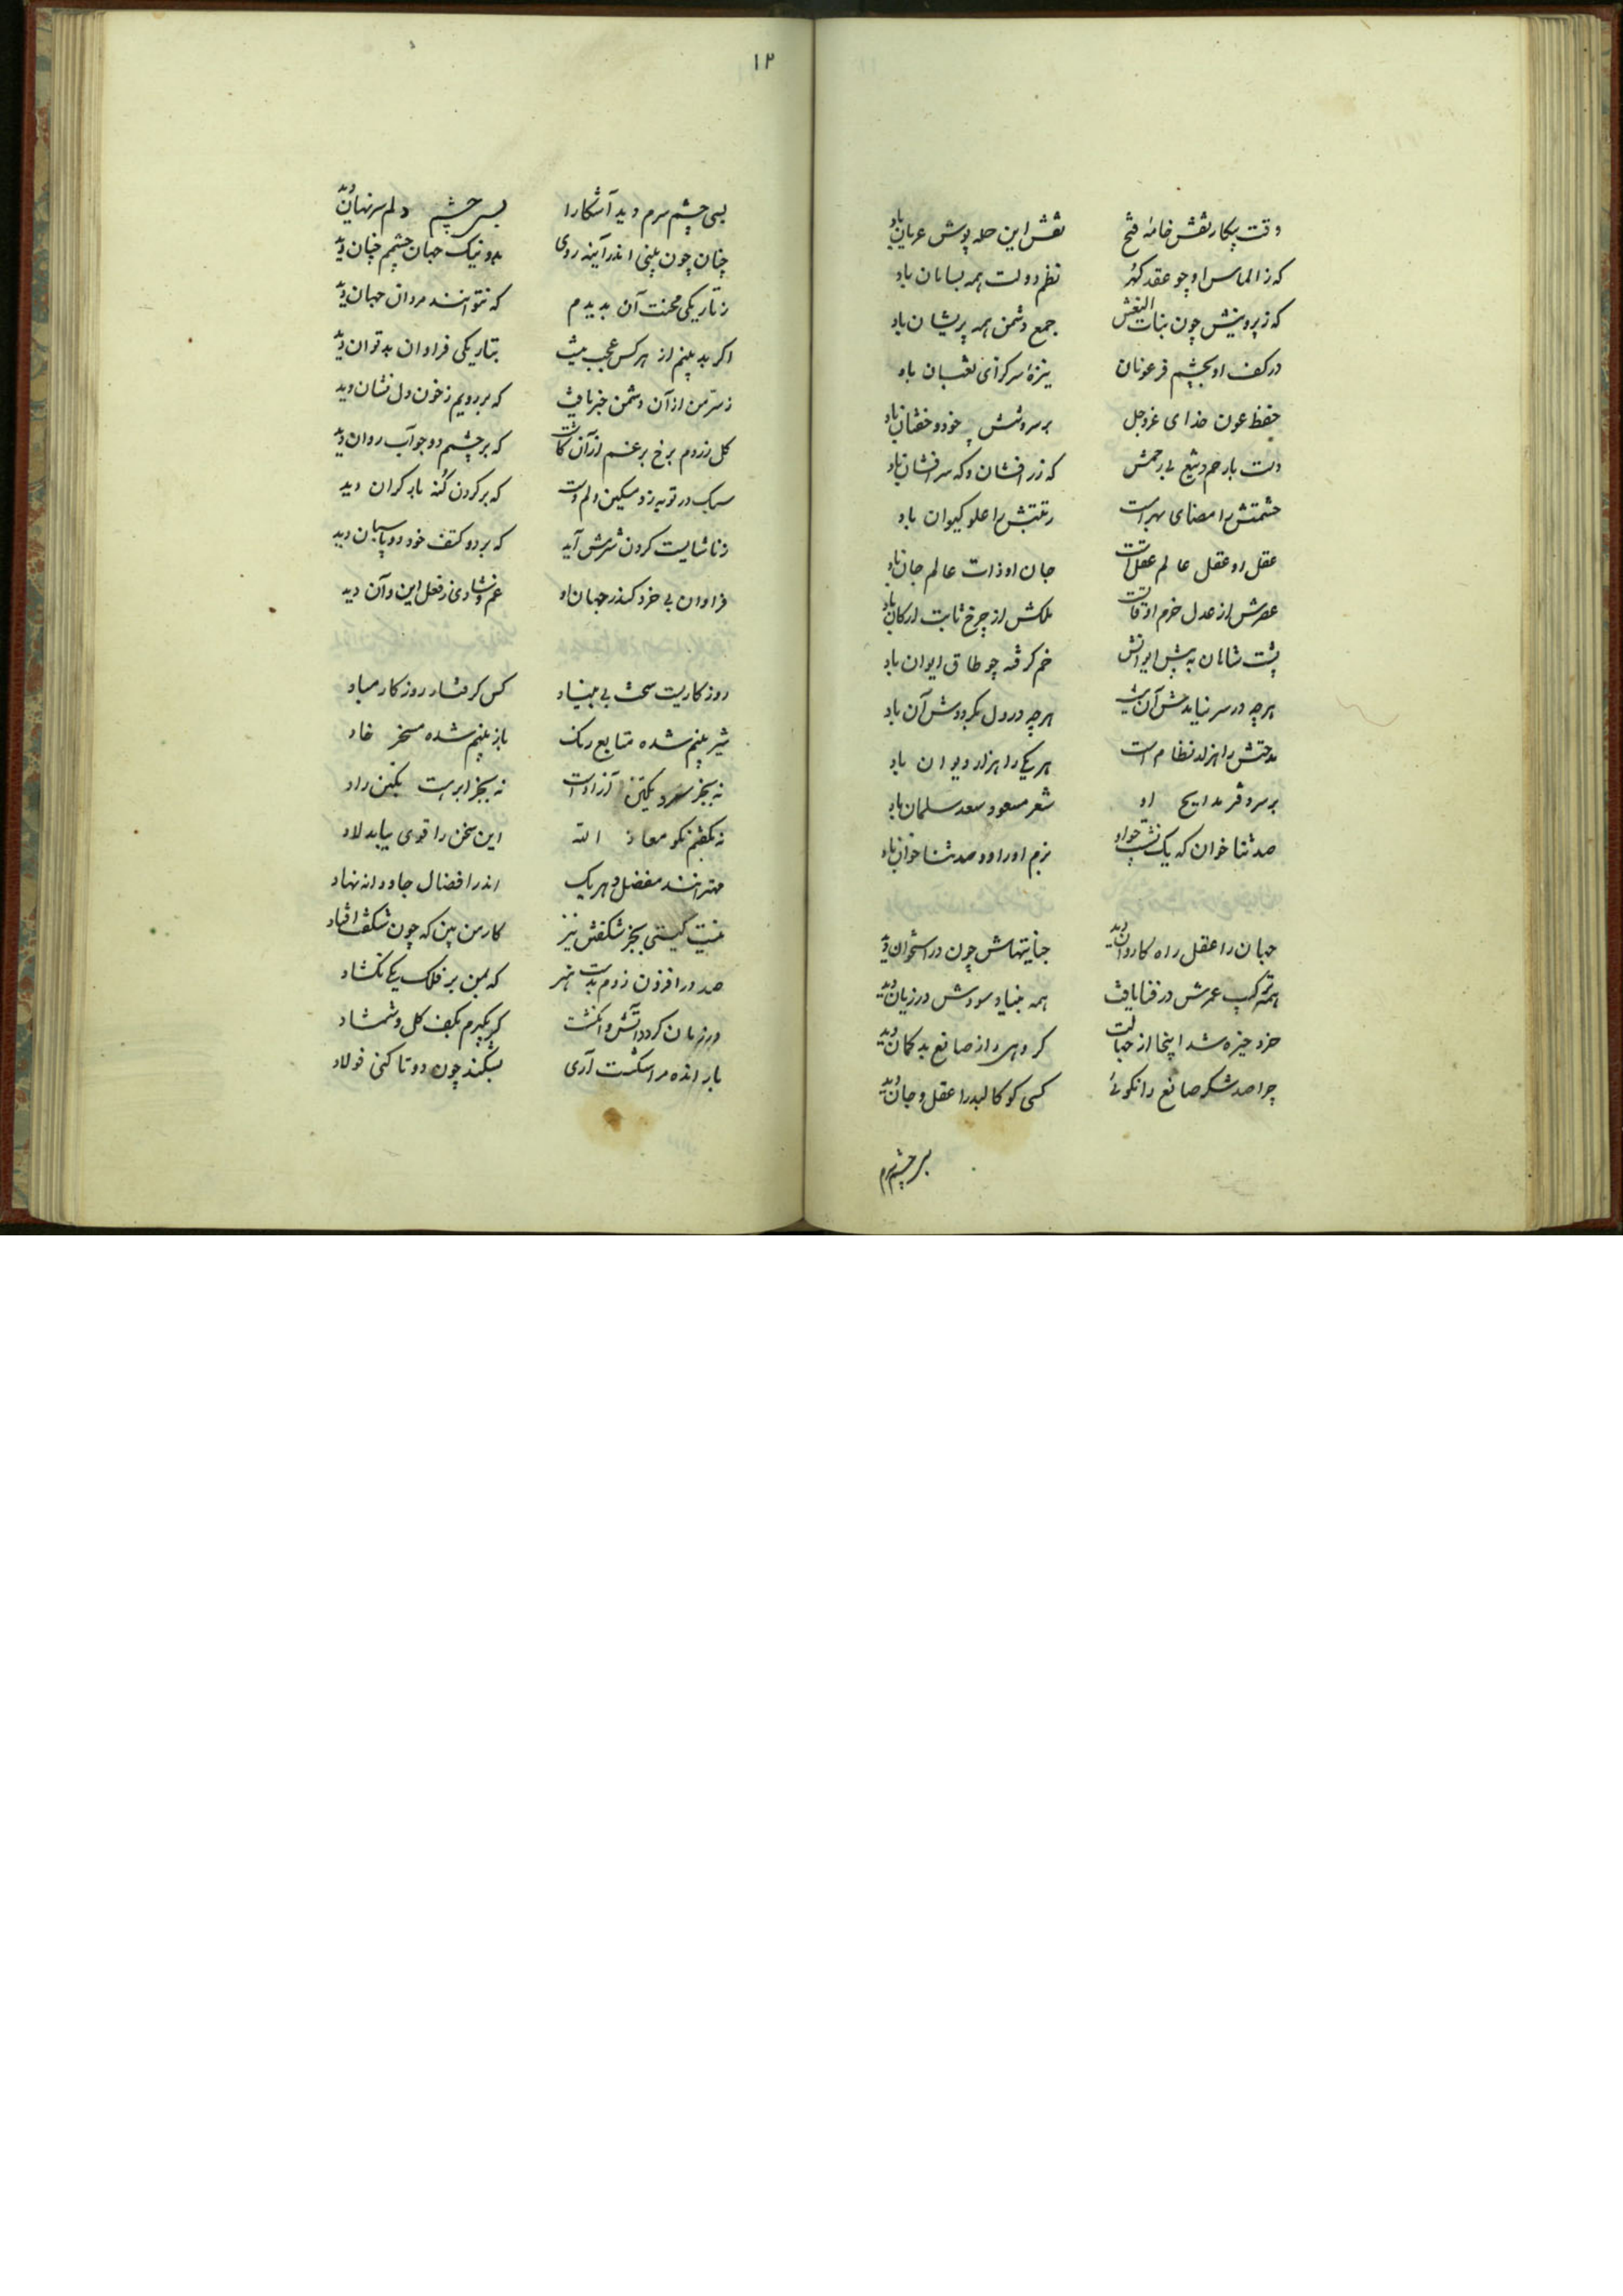 وقت پیکار نقش خامهٔ فتح نقش این حله پوش عریان باد
که ز الماس او چو عقد گهر نظم دولت همه بسامان باد
که ز پروینش چون بنات النعش جمع دشمن همه پریشان باد
در کف او بچشم فرعونان نیزهٔ سرگرای ثعبان باد
حفظ عون خدای عزوجل بر سر و تنش خود و خفتان باد
دست بارحم و تیغ بی رحمش که زر افشان و که سر افشان باد
حشمتش را مضای بهرام است رتبتش را علو کیوان باد
عقل او عقل عالم عقلست جان او ذات عالم جان باد
عصرش از عدل خرم اوقاتست ملکش از چرخ ثابت ارکان باد
پشت شاهان به پیش ایوانش خم گرفته چو طاق ایوان باد
هرچه در سر نیایدش آن هرچه در دل بگرددش آن باد
مدحتش را هزار نظام است هر یکی را هزار دیوان باد
بر سر دفتر مدایح او شعر مسعود سعد سلمان باد
صد ثنا خوان که یک نشست بزم او را دو صد ثنا خوان باد
جهان را عقل راه کاروان دید چون در استخوان دید
همه ترکیب عمرش در فنا یافت همه بنیاد سودش در زیان دید
خرد خیره شد اینجا از جهالت گروهی را ز صانع بد گمان دید
چرا صد شکر صانع را نگوئی کسی کو کالبد را عقل و جان دید
بسر چشم سرم
۱۲
بسی چشم سرم دید آشکارا بسر چشم دلم سر نهان دید
چنان چون بینی اندر آینه روی بد و نیک جهان چشمم چنان دید
ز تاریکی محنت آن بدیدم که نتوانند مردان جهان دید
اگر بد بینم از هر کس عجب نیست بتاریکی فراوان بد توان دید
ز سر من از آن دشمن خبر یافت که بر رویم ز خون دل نشان دید
گل زردم برخ بر غم از آن کاشت که بر چشمم دو جو آب روان دید
سبک در توبه زد مسکین دلم دست که بر گردن گنه بار گران دید
ز ناشایست کردن شرمش آید که بر دو کتف خود دو پاسبان دید
فراوان بی خرد کاندر جهان او غم و شادی ز فعل این و آن دید
روزگاریست سخت بی بنیاد کس گرفتار روزگار مباد
شیر بینم شده متابع رنگ باز بینم شده مسخر خاد
نه بجز سرو یکتن آزادست نه بجز ابر هست یکتن راد
نه بگفتم نکو معاذ الله این سخن را قوی بیاید لاد
مهترانند مفضل و هر یک اندر افضال جاودانه نهاد
نیست گیتی بجز شگفتی نیز کار من بین که چون شگفت افتاد
صد در افزون زدم بدست هنر که بمن بر فلک یکی نگشاد
در زمان گردد آتش و انگشت گر بگیرم بکف گل و شمشاد
بار انده مرا شکست آری بشکند چون دو تا کنی فولاد